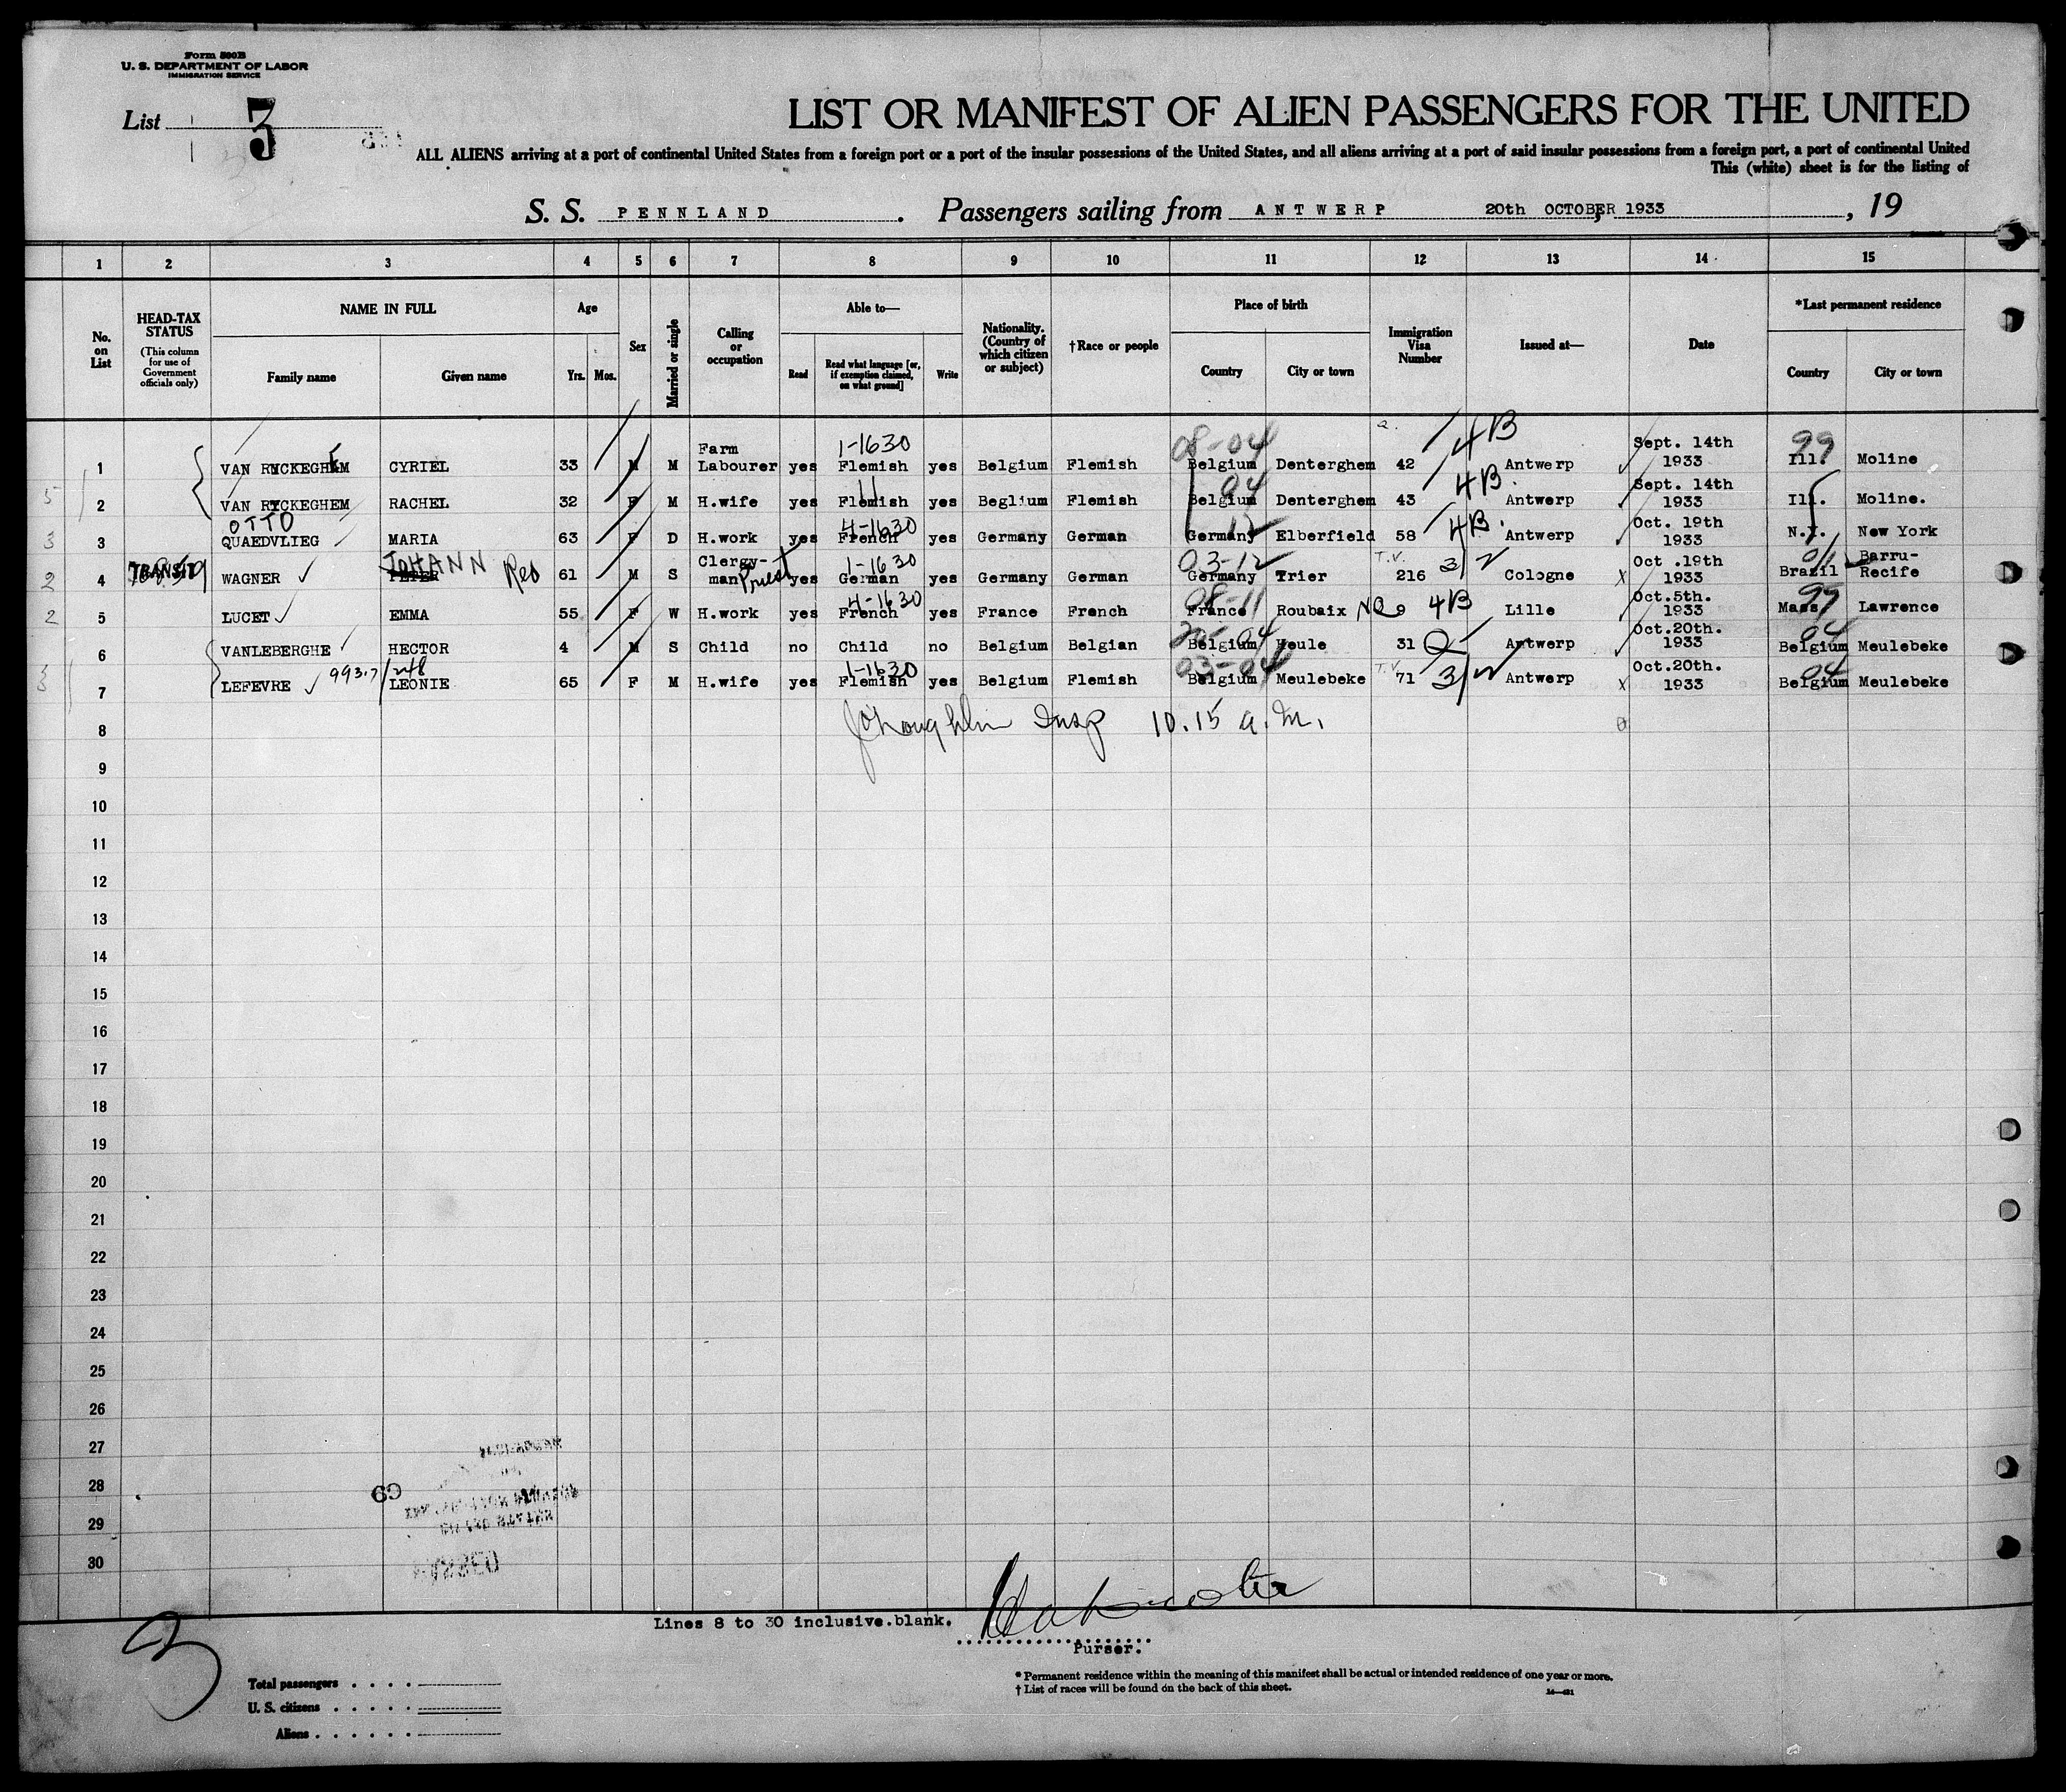 Form 500B
U. S. DEPARTMENT OF LABOR
IMMIGRATION SERVICE
List 3
LIST OR MANIFEST OF ALIEN PASSENGERS FOR THE UNITED
ALL ALIENS arriving at a port of continental United States from a foreign port or a port of the insular possessions of the United States, and all aliens arriving at a port of said insular possessions from a foreign port, a port of continental United
This (white) sheet is for the listing of
S. S. PENNLAND. Passengers sailing from ANTWERP 20th OCTOBER 1933, 19
1 2 3 4 5 6 7 8 9 10 11 12 13 14 15
No. on List
HEAD-TAX STATUS
(This column for use of Government officials only)
NAME IN FULL
Family name Given name
Age
Yrs. Mos.
Sex
Married or single
Calling or occupation
Able to—
Read Read what language [or, if exemption claimed, on what ground] Write
Nationality. (Country of which citizen or subject)
†Race or people
Place of birth
Country City or town
Immigration Visa Number
Issued at—
Date
*Last permanent residence
Country City or town
1-1630 08-04 4B 99
1 VAN RYCKEGHEM CYRIEL 33 M M Farm Labourer yes Flemish yes Belgium Flemish Belgium Denterghem 42 Antwerp Sept. 14th 1933 Ill. Moline
11 04 4B.
2 VAN RYCKEGHEM RACHEL 32 F M H.wife yes Flemish yes Beglium Flemish Belgium Denterghem 43 Antwerp Sept. 14th 1933 Ill. Moline.
OTTO 4-1630 12 4B.
3 QUAEDVLIEG MARIA 63 F D H.work yes French yes Germany German Germany Elberfield 58 Antwerp Oct. 19th 1933 N.Y. New York
JOHANN 1-1630 03-12 T.V.
4 TRANSIT WAGNER PETER Res 61 M S Clergy-man Priest yes German yes Germany German Germany Trier 216 3/ Cologne Oct .19th 1933 Brazil Barru-Recife
4-1630 08-11 99
5 LUCET EMMA 55 F W H.work yes French yes France French France Roubaix NQ 9 4B Lille Oct.5th. 1933 Mass Lawrence
20-04 04
6 VANLEBERGHE HECTOR 4 M S Child no Child no Belgium Belgian Belgium Heule 31 Q Antwerp Oct.20th. 1933 Belgium Meulebeke
1-1630 03-04 T.V. 04
7 LEFEVRE LEONIE 65 F M H.wife yes Flemish yes Belgium Flemish Belgium Meulebeke 71 3/ Antwerp Oct.20th. 1933 Belgium Meulebeke
8 Insp 10.15 a.m.
9
10
11
12
13
14
15
16
17
18
19
20
21
22
23
24
25
26
27
28
29
30
Lines 8 to 30 inclusive.blank.
Purser.
3
Total passengers
U. S. citizens
Aliens
* Permanent residence within the meaning of this manifest shall be actual or intended residence of one year or more.
† List of races will be found on the back of this sheet.